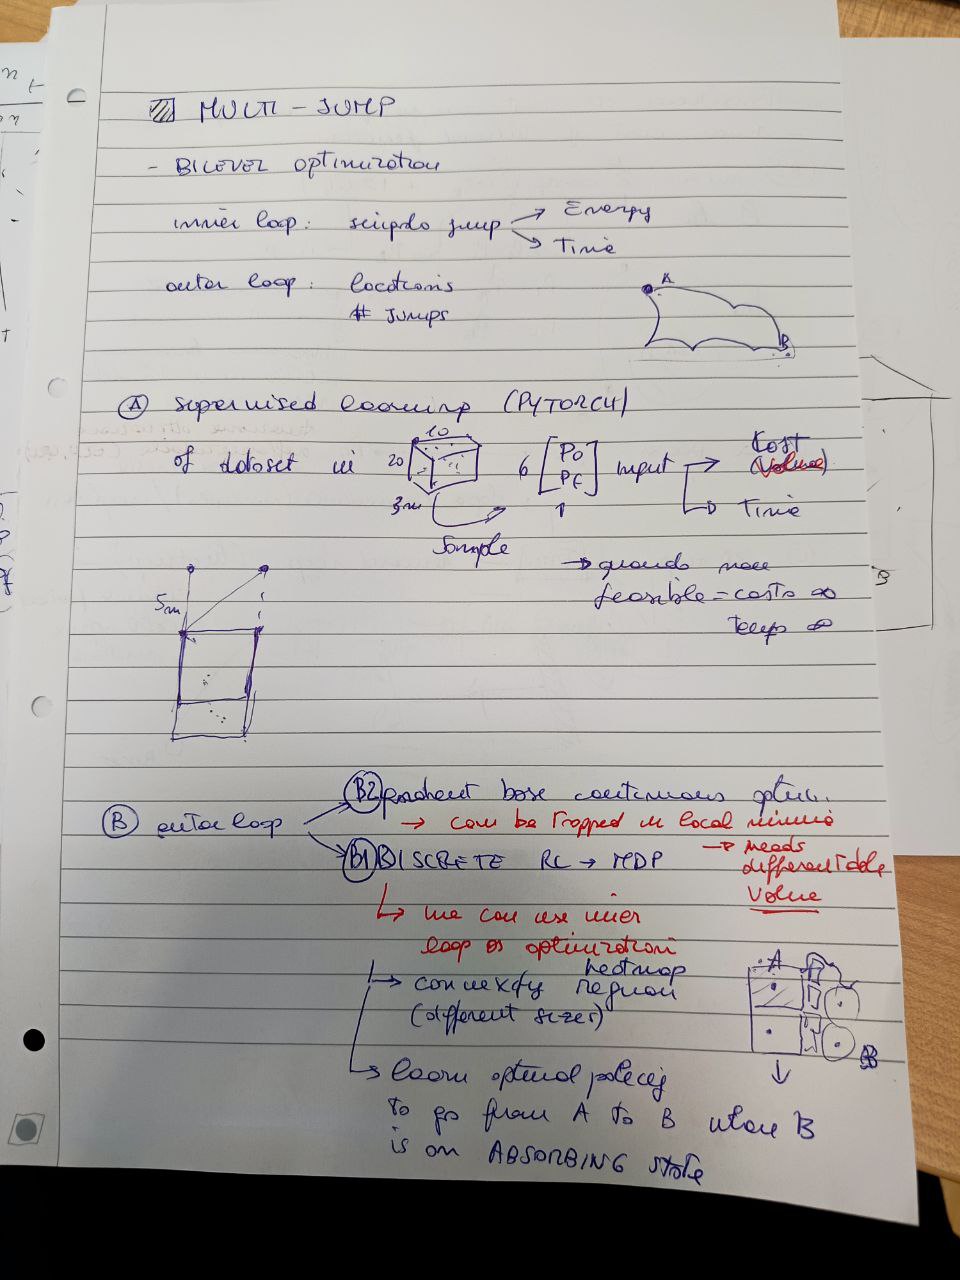 MULTI-JUMP
- BILEVEL optimization
inner loop: singolo jump → Energy
→ Time
outer loop: locations
# Jumps
A
B
Ⓐ supervised learning (PYTORCH)
of dataset in
10
20
3m
Sample
6 [P0 Pf] input → Cost (Value)
→ Time
→ quando non
feasible = costo ∞
temp ∞
5m
B
Ⓑ outer loop
B2 gradient base continuous optim.
→ can be trapped in local minima
→ needs differentiable Value
B1 DISCRETE RL → MDP
↳ we can use inner
loop as optimization
heatmap
→ convexify region
(different sizes)
A
B
↳ learn optimal policy
to go from A to B where B
is an ABSORBING state